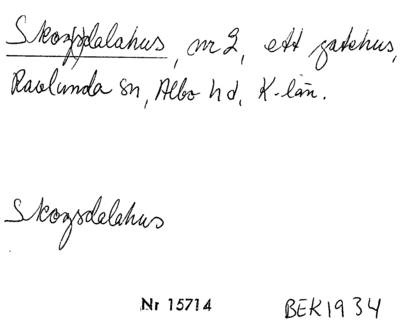 Skogsdalahus, nr 2, ett gatehus,
Ravlunda sn, Albo hd, K-län.
Skogsdalahus
Nr 15714 BEK1934